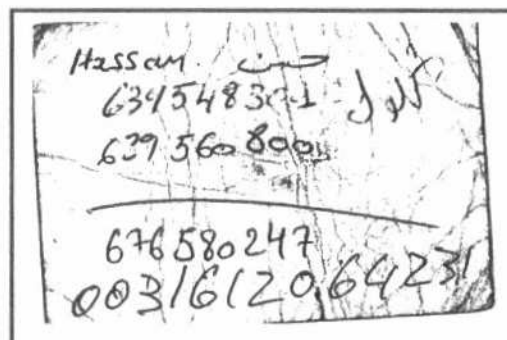 Hassan. حسن
634548301
639560800
676580247
0031612064231